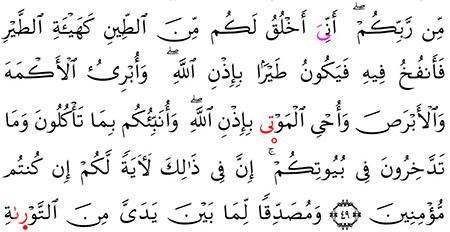 مِّن رَّبِّكُمْ ۖ أَنِّىَ أَخْلُقُ لَكُم مِّنَ ٱلطِّينِ كَهَيْـَٔةِ ٱلطَّيْرِ
فَأَنفُخُ فِيهِ فَيَكُونُ طَيْرًۢا بِإِذْنِ ٱللَّهِ ۖ وَأُبْرِئُ ٱلْأَكْمَهَ
وَٱلْأَبْرَصَ وَأُحْىِ ٱلْمَوْتِى بِإِذْنِ ٱللَّهِ ۖ وَأُنَبِّئُكُم بِمَا تَأْكُلُونَ وَمَا
تَدَّخِرُونَ فِى بُيُوتِكُمْ ۚ إِنَّ فِى ذَٰلِكَ لَـَٔايَةً لَّكُمْ إِن كُنتُم
مُّؤْمِنِينَ ﴿٤٩﴾ وَمُصَدِّقًا لِّمَا بَيْنَ يَدَىَّ مِنَ ٱلتَّوْرىٰةِ